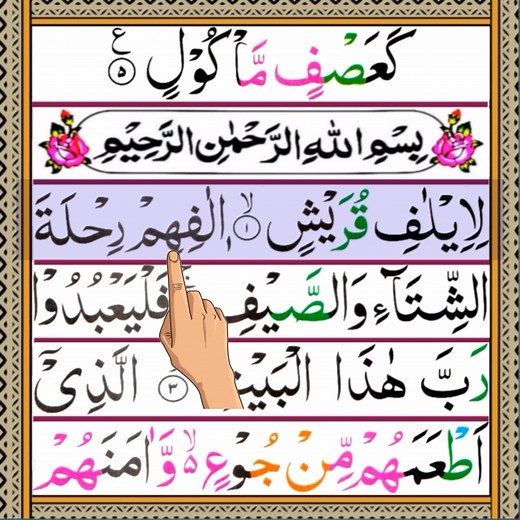 كَعَصْفٍ مَّاۡكُوۡلٍ ۵ ع
بِسْمِ اللهِ الرَّحْمٰنِ الرَّحِيْمِ
لِاِيْلٰفِ قُرَيْشٍ ۙ۱ اٖلٰفِهِمْ رِحْلَةَ
الشِّتَآءِ وَالصَّيْفِ فَلْيَعْبُدُوْا
رَبَّ هٰذَا الْبَيْتِ ۳ الَّذِيْۤ
اَطْعَمَهُمْ مِّنْ جُوْعٍ ۙ۬ وَّاٰمَنَهُمْ